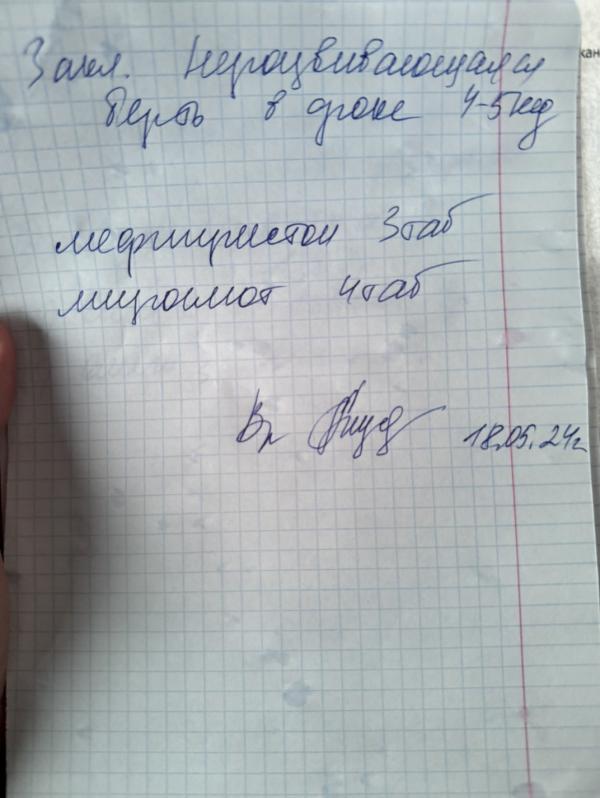 Закл. Неразвивающаяся
берть в сроке 4-5 нед
мефпиристон 3 таб
мизопмот 4 таб
Вр
18.05.24г
кан